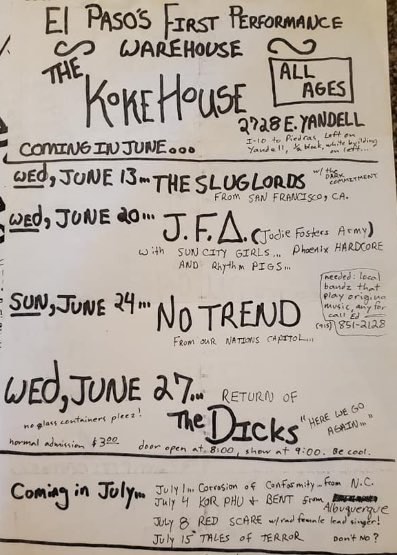 EL PASO'S FIRST PERFORMANCE
WAREHOUSE
THE
KOKE HOUSE
ALL
AGES
2728 E. YANDELL
I-10 to Piedras, Left on
Yandell, ½ block, white building
on left...
COMING IN JUNE...
WED, JUNE 13... THE SLUGLORDS w/ the DARK COMMITMENT
FROM SAN FRANCISCO, CA.
WED, JUNE 20... J.F.A. (Jodie Fosters Army)
with SUN CITY GIRLS... Phoenix HARDCORE
AND Rhythm PIGS...
SUN, JUNE 24... NO TREND
FROM OUR NATIONS CAPITOL...
needed: local
bands that
play original
music, any for
call Ed
(915) 851-2128
WED, JUNE 27... RETURN OF
The DICKS "HERE WE GO
AGAIN..."
no glass containers pleez!
normal admission $3.00 door open at 8:00, show at 9:00. Be cool.
Coming in July... July 1... Corrosion of Conformity... from N.C.
July 4 KOR PHU + BENT from Albuquerque
July 8 RED SCARE w/rad female lead singer!
July 15 TALES OF TERROR Don't No?